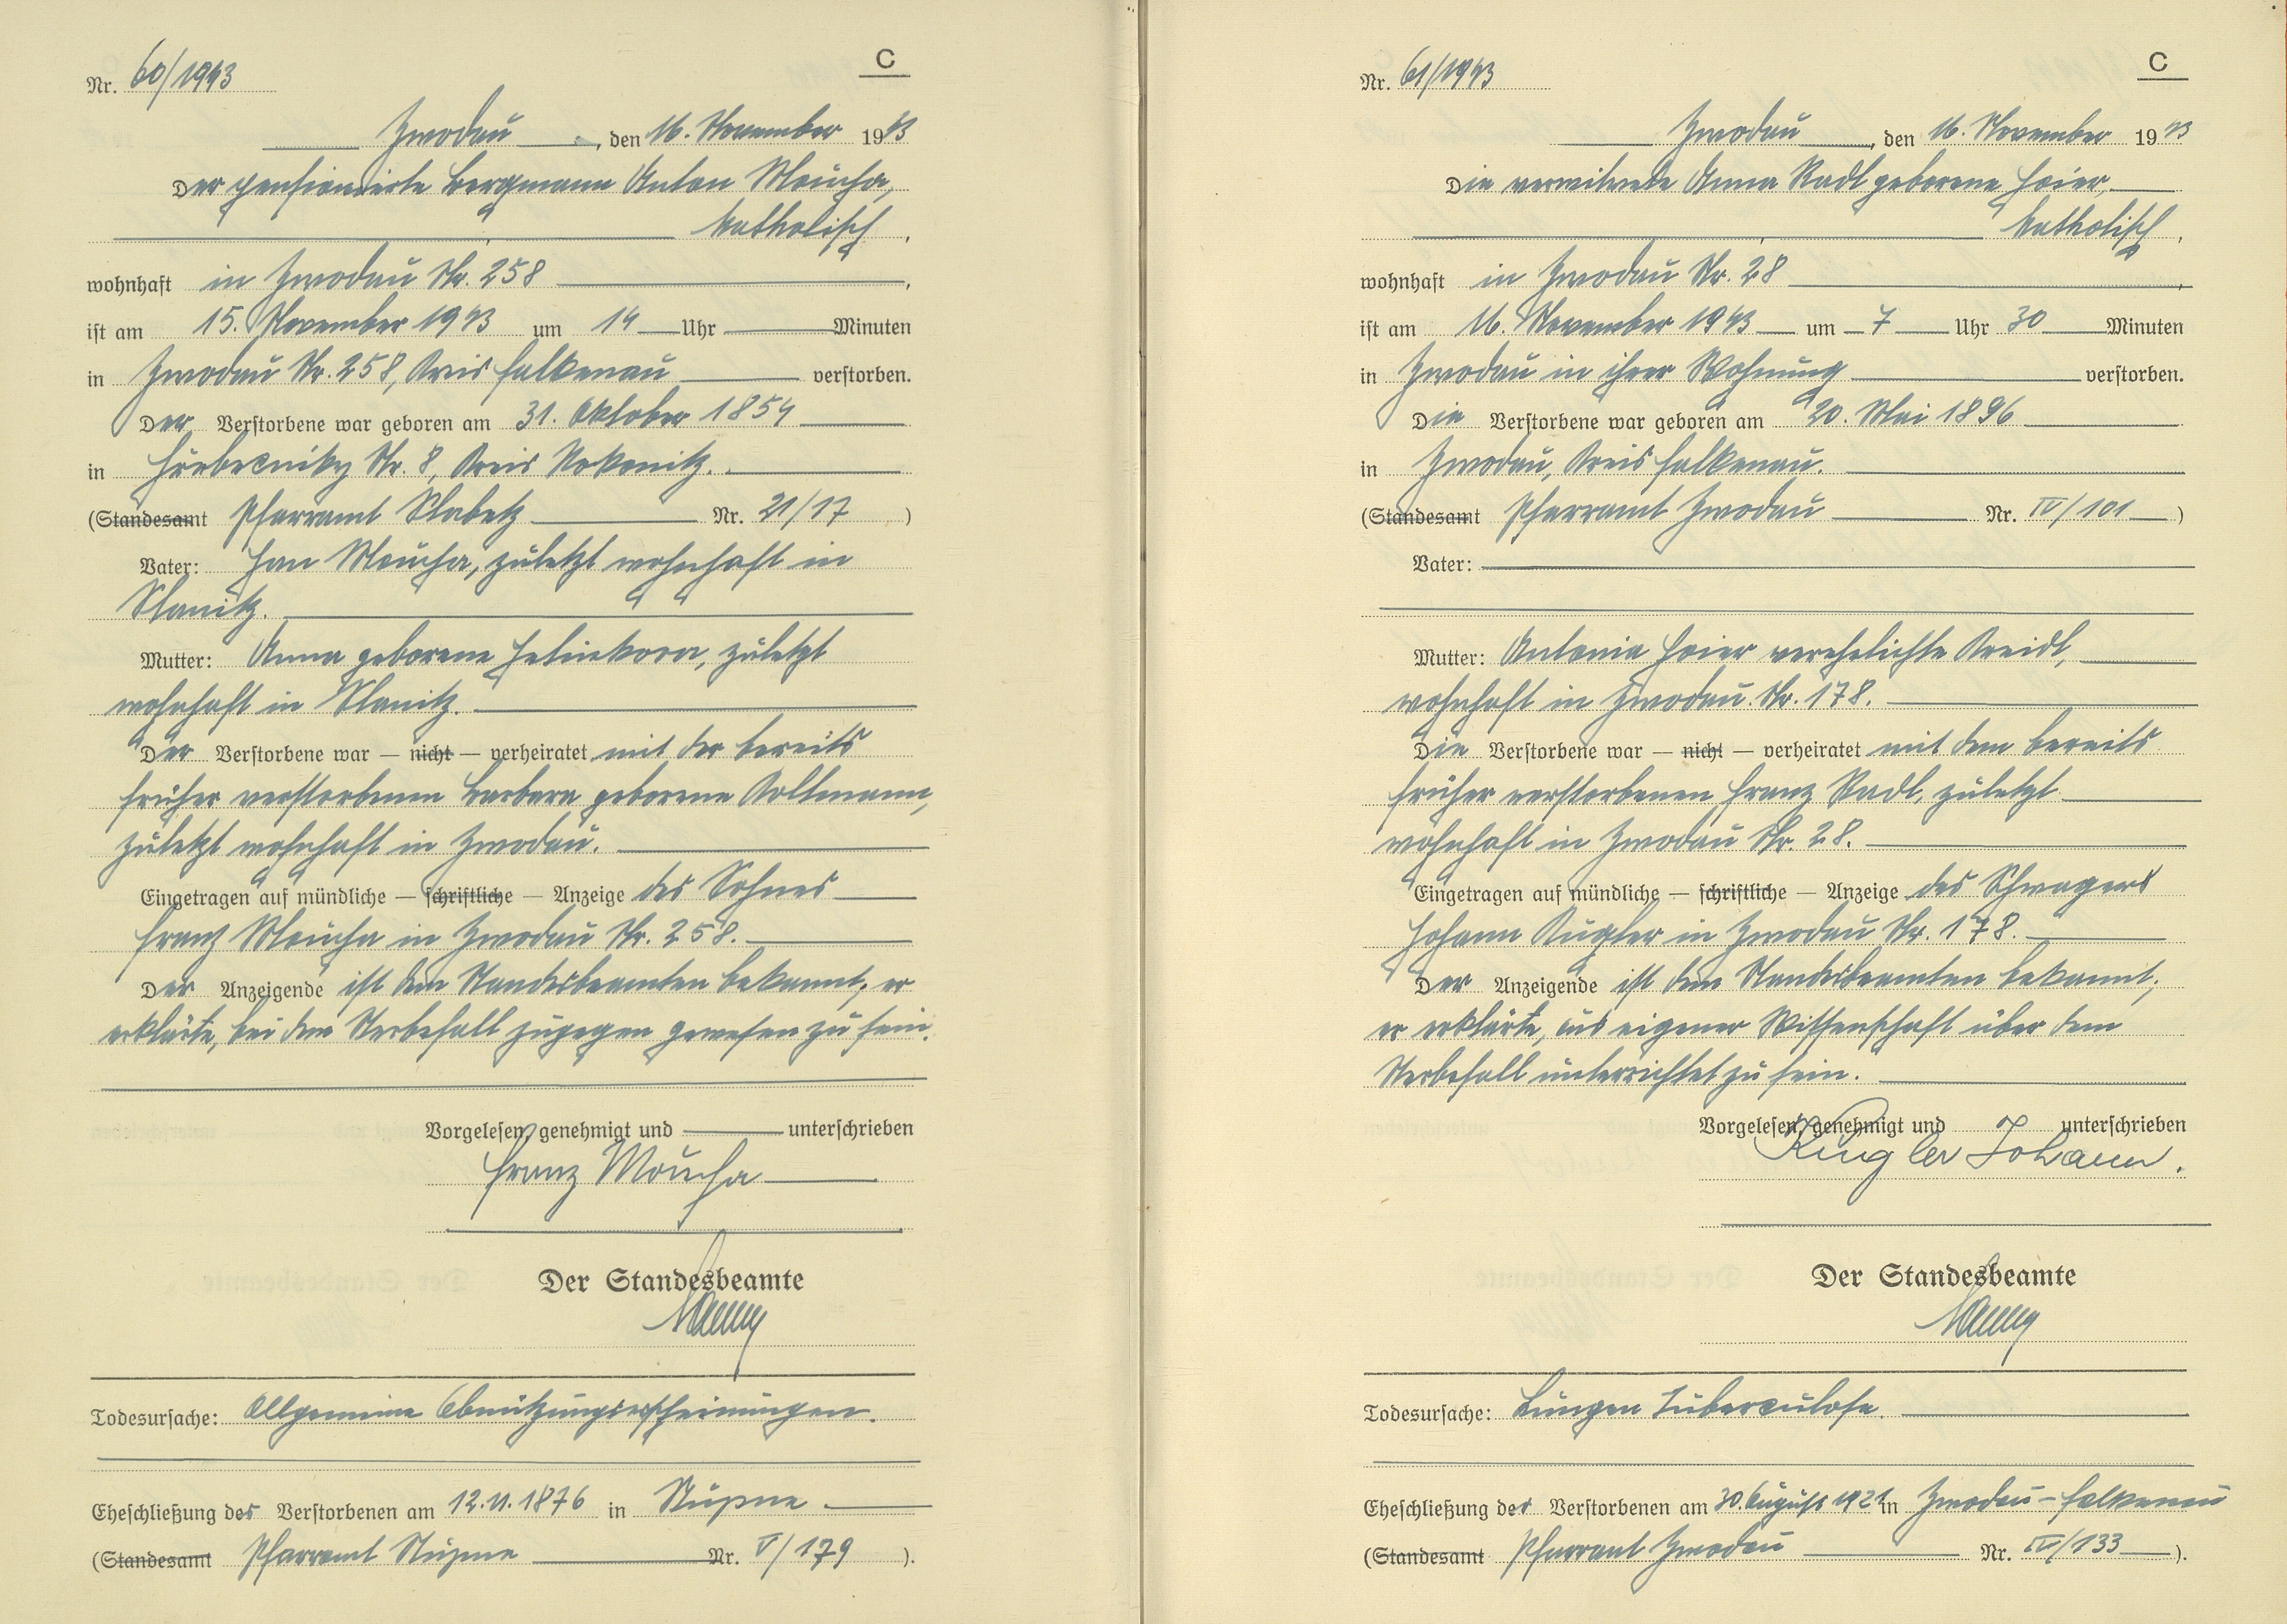 Nr. 60/1943
C
Zwodau, den 16. November 1943
Der pensionierte Bergmann Anton Moucha,
katholisch,
wohnhaft in Zwodau Nr. 258,
ist am 15. November 1943 um 14 Uhr Minuten
in Zwodau Nr. 258, Kreis Falkenau verstorben.
Der Verstorbene war geboren am 31. Oktober 1854
in Nr. 8, Kreis Rakonitz.
(Standesamt Pfarramt Slabetz Nr. 21/17)
Vater: Jan Moucha, zuletzt wohnhaft in
Slanitz.
Mutter: Anna geborene Jelinkova, zuletzt
wohnhaft in Slanitz.
Der Verstorbene war — nicht — verheiratet mit der bereits
früher verstorbenen Barbara geborene Kollmann,
zuletzt wohnhaft in Zwodau.
Eingetragen auf mündliche — schriftliche — Anzeige des Sohnes
Franz Moucha in Zwodau Nr. 258.
Der Anzeigende ist dem Standesbeamten bekannt; er
erklärte, bei dem Sterbefall zugegen gewesen zu sein.
Vorgelesen, genehmigt und unterschrieben
Franz Moucha
Der Standesbeamte
Todesursache: Allgemeine Abnützungserscheinungen.
Eheschließung des Verstorbenen am 12.11.1876 in Stupne
(Standesamt Pfarramt Stupne Nr. V/179).
Nr. 61/1943
C
Zwodau, den 16. November 1943
Die verwitwete Anna Radl geborene Hoier,
katholisch,
wohnhaft in Zwodau Nr. 28,
ist am 16. November 1943 um 7 Uhr 30 Minuten
in Zwodau in ihrer Wohnung verstorben.
Die Verstorbene war geboren am 20. Mai 1896
in Zwodau, Kreis Falkenau.
(Standesamt Pfarramt Zwodau Nr. IV/101)
Vater:
Mutter: Antonia Hoier verehelichte Kreidl,
wohnhaft in Zwodau Nr. 178.
Die Verstorbene war — nicht — verheiratet mit dem bereits
früher verstorbenen Franz Radl, zuletzt
wohnhaft in Zwodau Nr. 28.
Eingetragen auf mündliche — schriftliche — Anzeige des Schwagers
Johann Kugler in Zwodau Nr. 178.
Der Anzeigende ist dem Standesbeamten bekannt;
er erklärte, aus eigener Wissenschaft über dem
Sterbefall unterrichtet zu sein.
Vorgelesen, genehmigt und unterschrieben
Kugler Johann.
Der Standesbeamte
Todesursache: Lungen Tuberculose.
Eheschließung der Verstorbenen am 30. August 1921 in Zwodau-Falkenau
(Standesamt Pfarramt Zwodau Nr. IV/133).